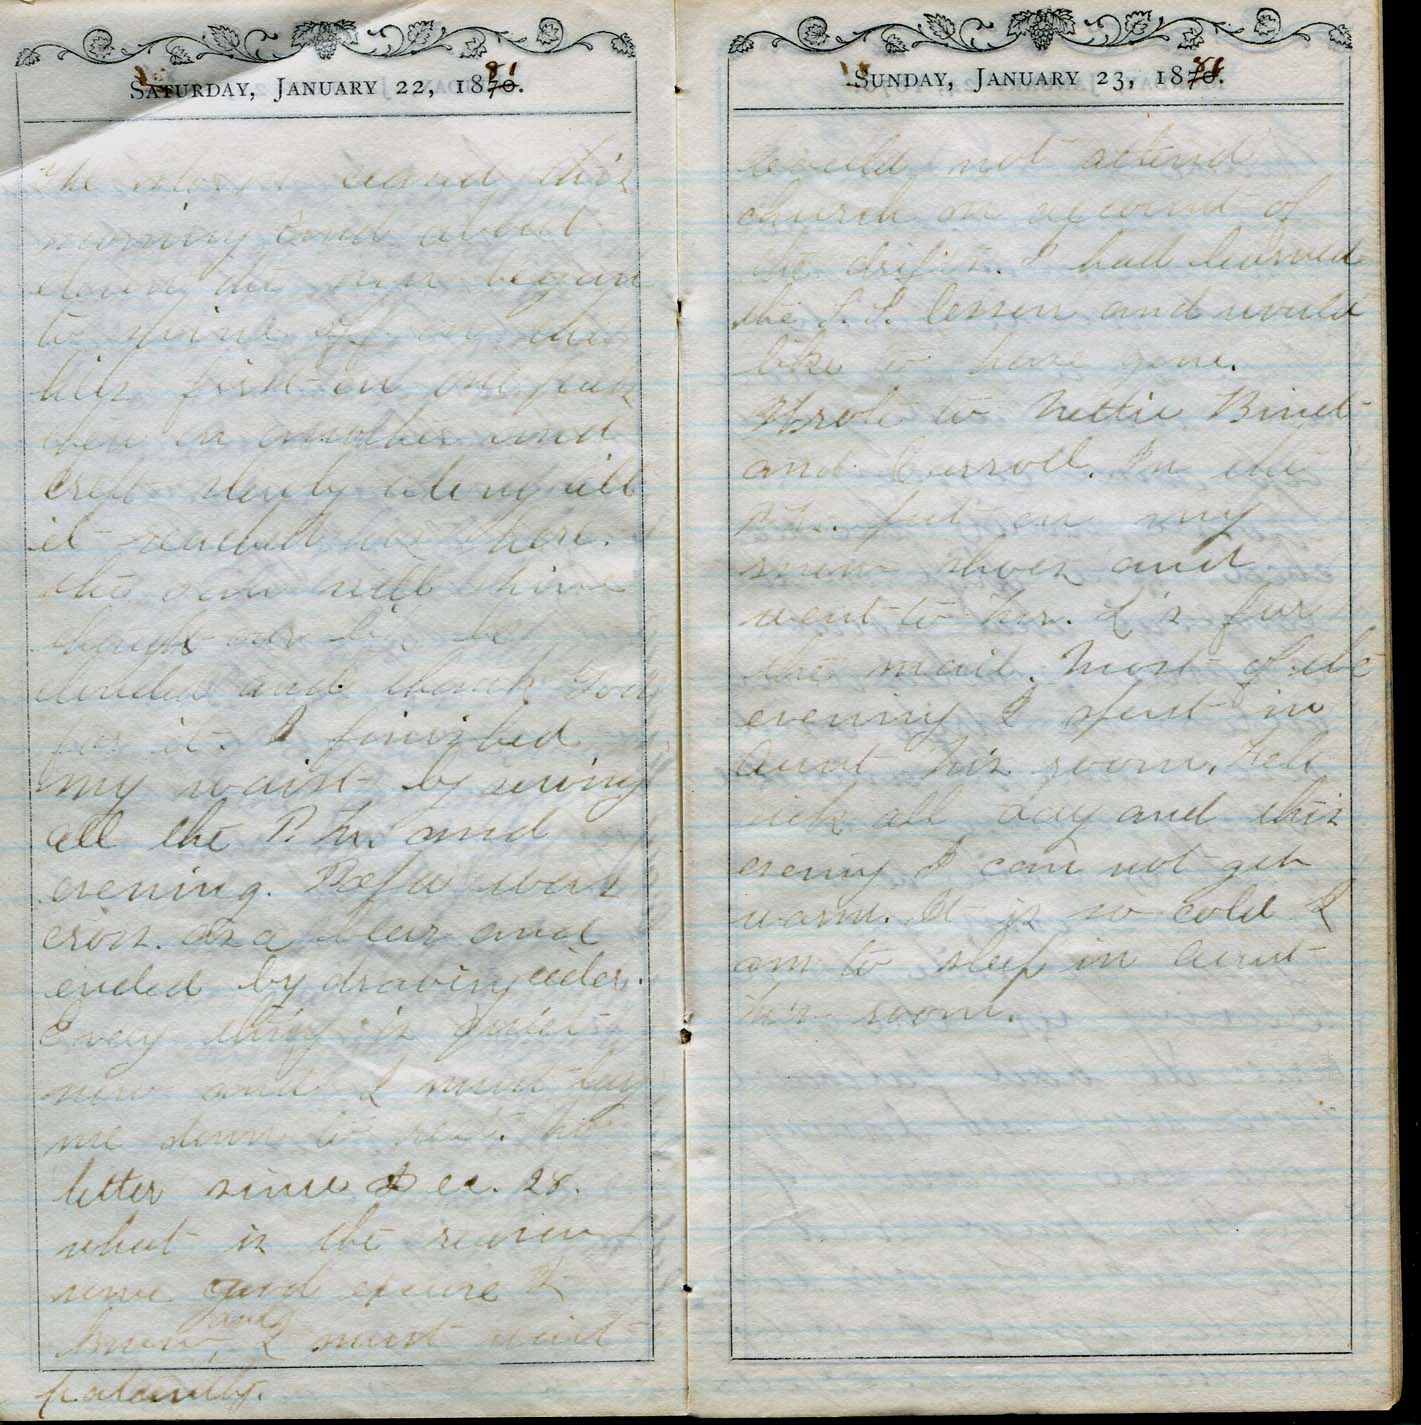 SATURDAY, JANUARY 22, 1881.
The storm ceased this
morning and about
eleven the sun began
to shine off on the
hills first in one place
then in another and
crept slowly along till
it reached here.
the sun will shine
and thank God
for it. I finished
my waist by sewing
all the P.M. and
evening. Papa was
cross as a bear and
ended by drawing cider.
Every thing is quiet
now and I must lay
me down to rest. No
letter since Dec. 28.
what is the reason
some good excuse I
know, and I must wait
patiently.
SUNDAY, JANUARY 23, 1881.
Could not attend
church on account of
the drifts. I had learned
the S.S. lesson and would
like to have gone.
Wrote to Nettie Bined
and Carroll. In the
P.M. put on my
snow shoes and
went to Mr. L's for
the mail. Most of the
evening I spent in
Aunt M's room. Felt
sick all day and this
evening I can not get
warm. It is so cold I
am to sleep in Aunt
M's room.